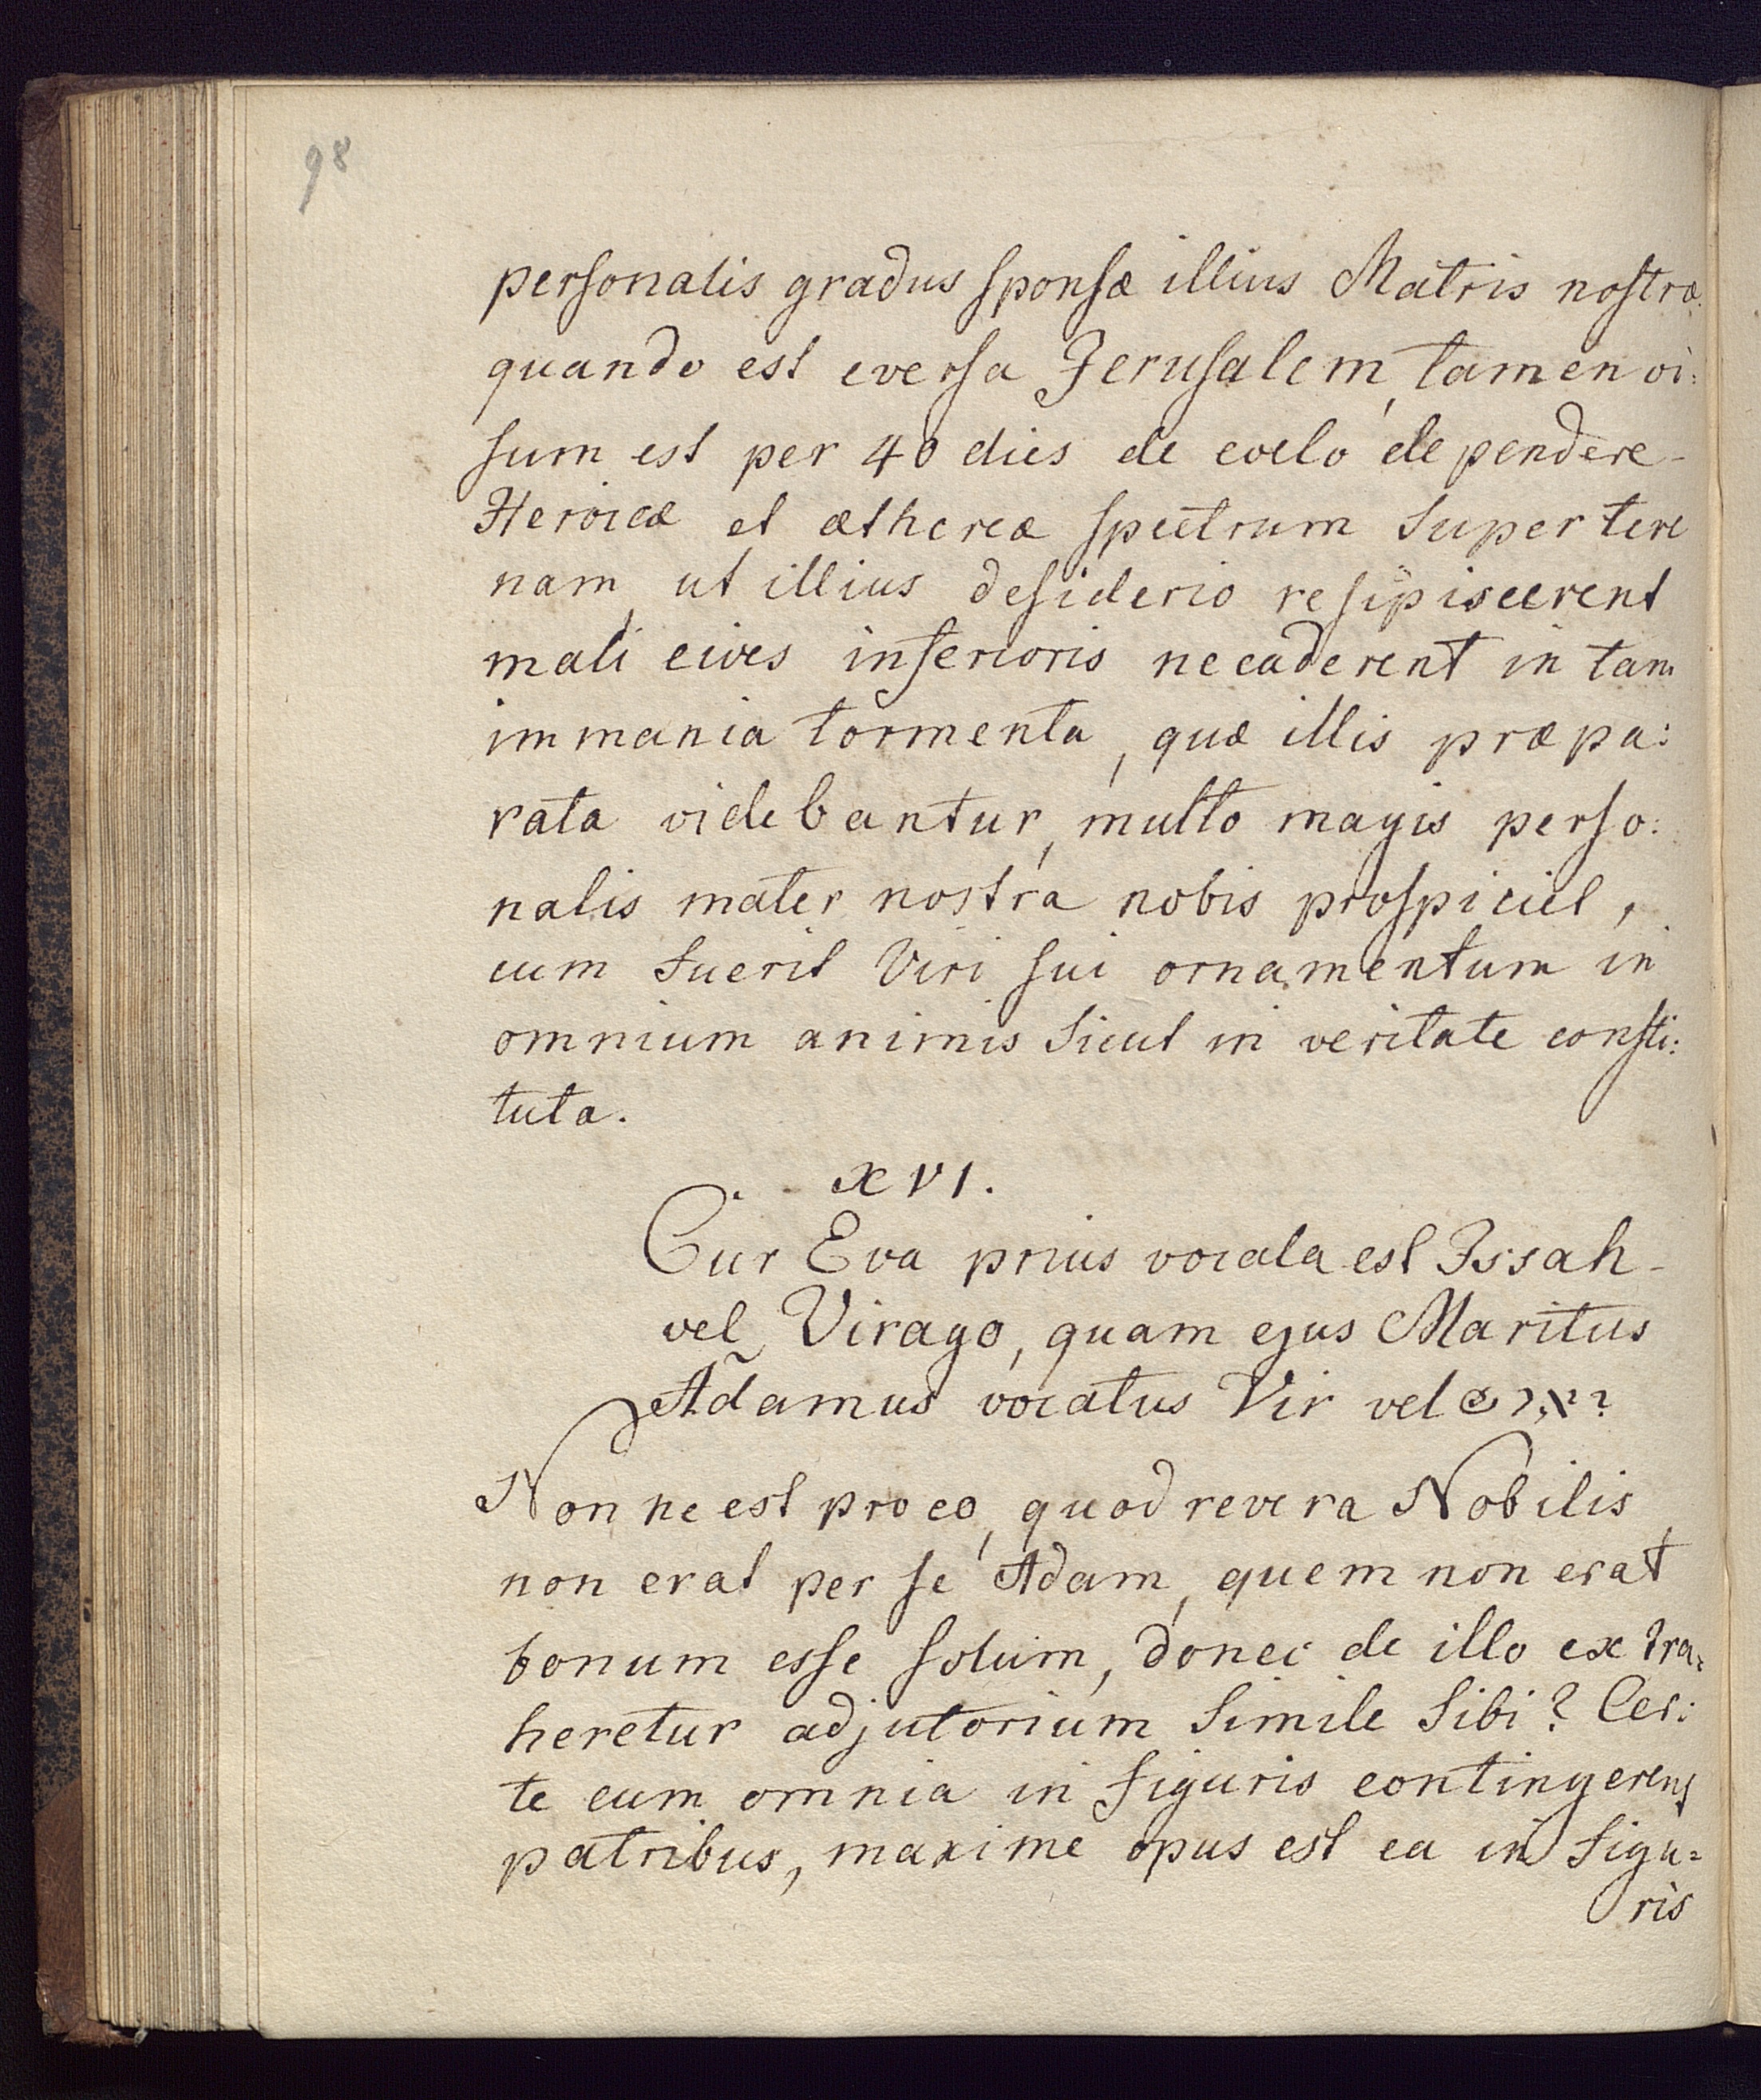 98
personalis gradus sponsæ illius Matris nostræ
quando est eversa Jerusalem, tamen vi:
sum est per 40 dies de coelo dependere
Heroicæ et æthereæ spectrum super tere
nam, ut illius desiderio resipiscerent
mali cives inferioris ne caderent in tam
immania tormenta, quæ illis præpa:
rata videbantur, multo magis perso:
nalis mater nostra nobis prospiciet,
cum fuerit Viri sui ornamentum in
omnium animis sicut in veritate consti:
tuta.
XVI.
Cur Eva prius vocata est Issah
vel Virago, quam ejus Maritus
Adamus vocatus Vir vel איש?
Non ne est pro eo, quod revera Nobilis
non erat per se Adam, quem non erat
bonum esse solum, donec de illo extra:
heretur adjutorium simile sibi? Cer:
te cum omnia in figuris contingerent
patribus, maxime opus est ea in figu=
ris